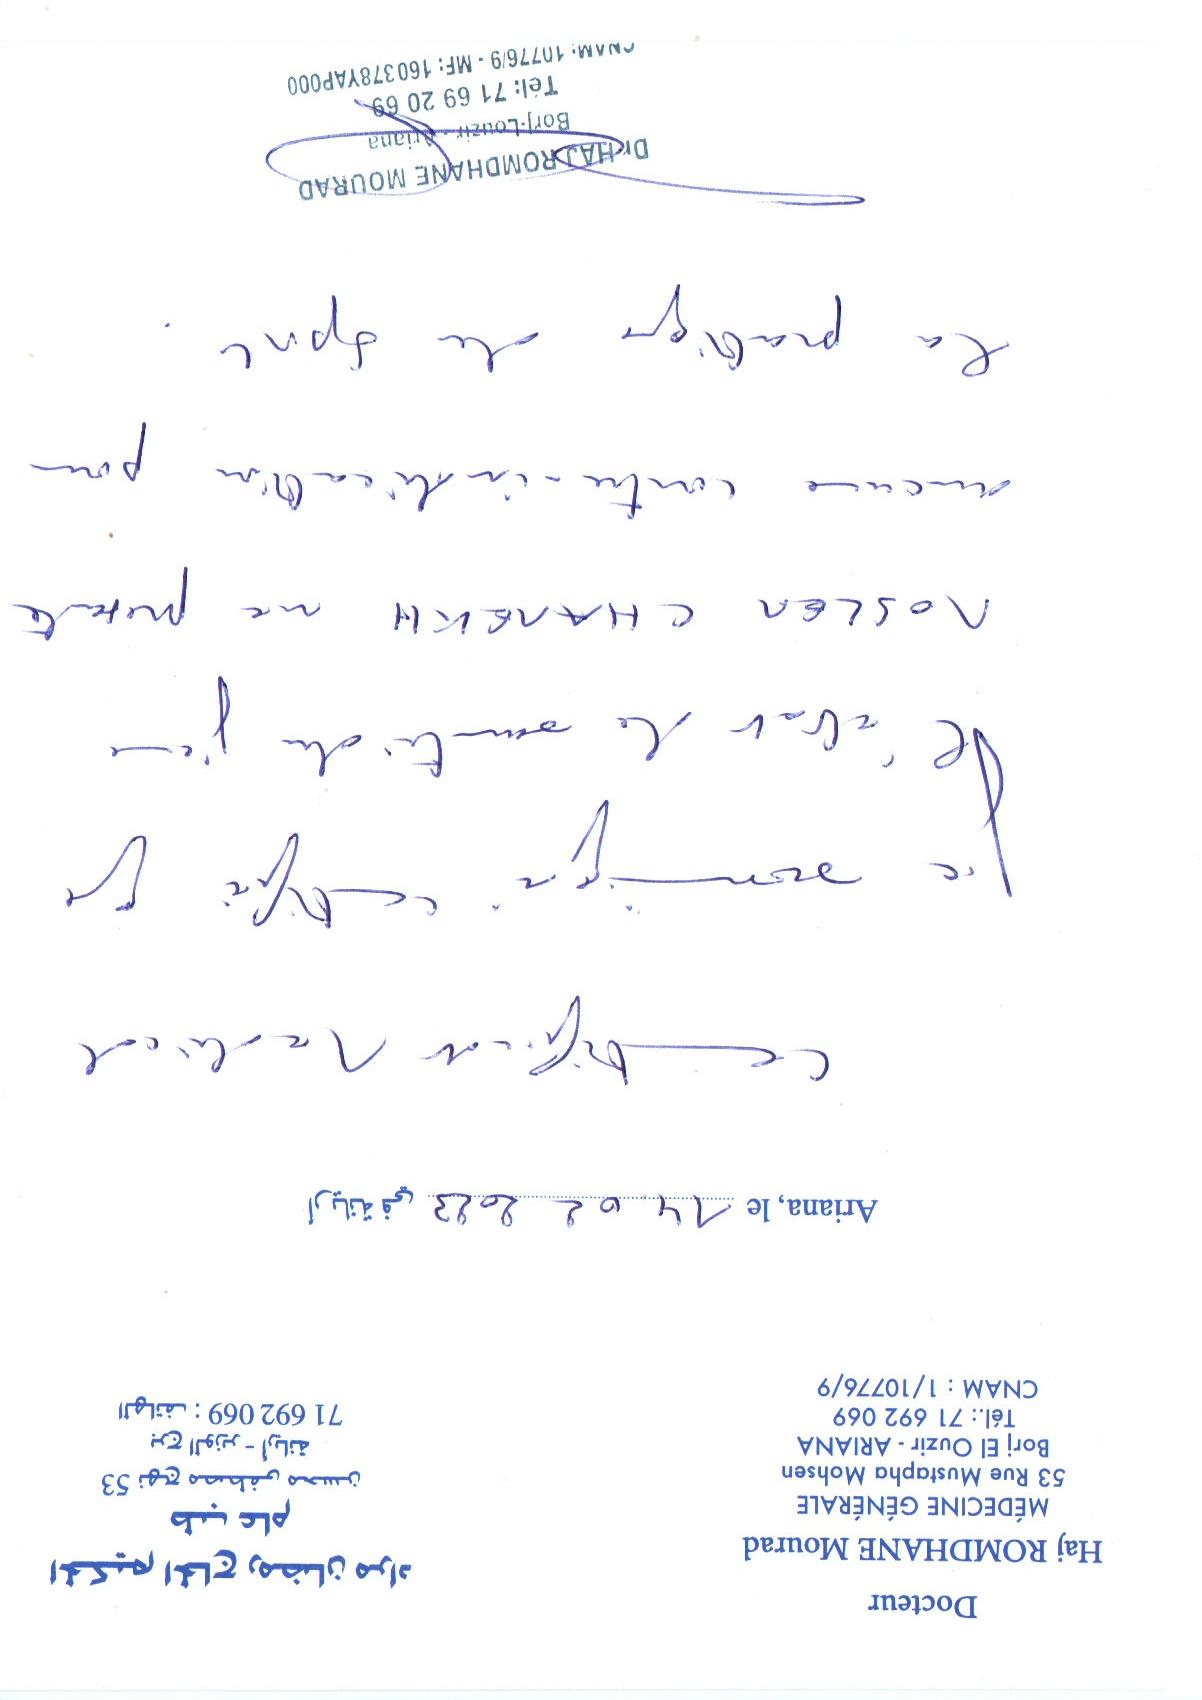 Docteur
Haj ROMDHANE Mourad
MÉDECINE GÉNÉRALE
53 Rue Mustapha Mohsen
Borj El Ouzir - ARIANA
Tél.: 71 692 069
CNAM : 1/10776/9
الحكيم الحاج رمضان مراد
طب عام
53 نهج مصطفى محسن
برج الوزير - أريانة
الهاتف : 71 692 069
Ariana, le 14 02 2023 أريانة في
Certificat Médical
Je soussigné certifie que
l'état de santé du jeune
MOSLEM CHAREKH ne présente
aucune contre-indication pour
la pratique du sport.
Dr HAJ ROMDHANE MOURAD
Borj-Louzir - Ariana
Tél: 71 69 20 69
CNAM: 10776/9 - MF: 160378YAP000